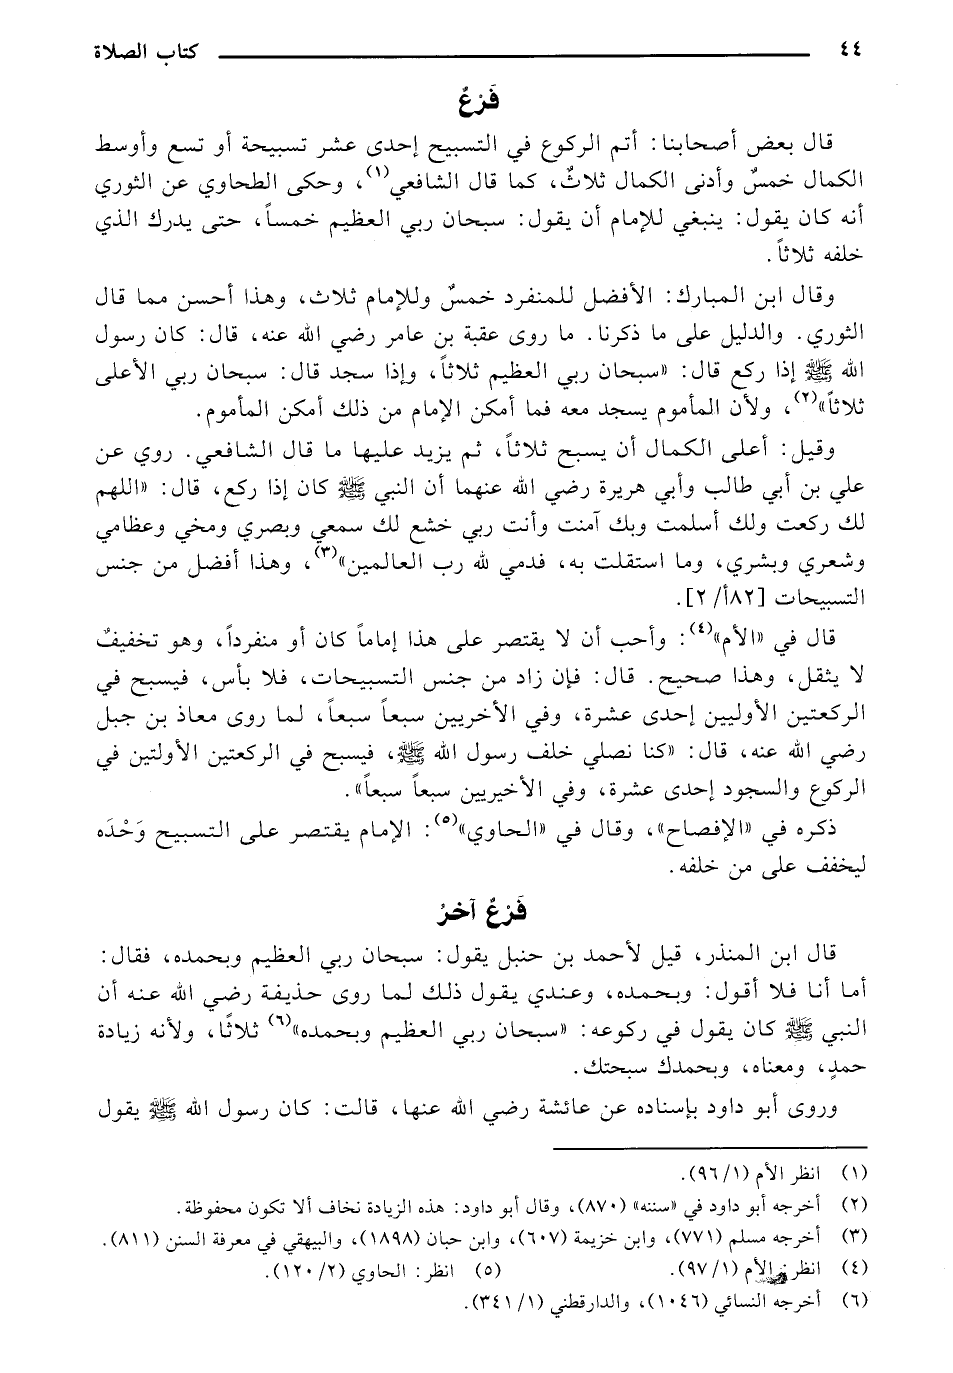 ٤٤ كتاب الصلاة
فَرْعٌ
قال بعض أصحابنا: أتم الركوع في التسبيح إحدى عشر تسبيحة أو تسع وأوسط
الكمال خمسٌ وأدنى الكمال ثلاثٌ، كما قال الشافعي(١)، وحكى الطحاوي عن الثوري
أنه كان يقول: ينبغي للإمام أن يقول: سبحان ربي العظيم خمساً، حتى يدرك الذي
خلفه ثلاثاً.
وقال ابن المبارك: الأفضل للمنفرد خمسٌ وللإمام ثلاث، وهذا أحسن مما قال
الثوري. والدليل على ما ذكرنا. ما روى عقبة بن عامر رضي الله عنه، قال: كان رسول
الله ﷺ إذا ركع قال: «سبحان ربي العظيم ثلاثاً، وإذا سجد قال: سبحان ربي الأعلى
ثلاثاً»(٢)، ولأن المأموم يسجد معه فما أمكن الإمام من ذلك أمكن المأموم.
وقيل: أعلى الكمال أن يسبح ثلاثاً، ثم يزيد عليها ما قال الشافعي. روي عن
علي بن أبي طالب وأبي هريرة رضي الله عنهما أن النبي ﷺ كان إذا ركع، قال: «اللهم
لك ركعت ولك أسلمت وبك آمنت وأنت ربي خشع لك سمعي وبصري ومخي وعظامي
وشعري وبشري، وما استقلت به، قدمي لله رب العالمين»(٣)، وهذا أفضل من جنس
التسبيحات [٨٢أ/ ٢].
قال في «الأم»(٤): وأحب أن لا يقتصر على هذا إماماً كان أو منفرداً، وهو تخفيفٌ
لا يثقل، وهذا صحيح. قال: فإن زاد من جنس التسبيحات، فلا بأس، فيسبح في
الركعتين الأوليين إحدى عشرة، وفي الأخريين سبعاً سبعاً، لما روى معاذ بن جبل
رضي الله عنه، قال: «كنا نصلي خلف رسول الله ﷺ، فيسبح في الركعتين الأولتين في
الركوع والسجود إحدى عشرة، وفي الأخيريين سبعاً سبعاً».
ذكره في «الإفصاح»، وقال في «الحاوي»(٥): الإمام يقتصر على التسبيح وَحْدَه
ليخفف على من خلفه.
فَرْعٌ آخرُ
قال ابن المنذر، قيل لأحمد بن حنبل يقول: سبحان ربي العظيم وبحمده، فقال:
أما أنا فلا أقول: وبحمده، وعندي يقول ذلك لما روى حذيفة رضي الله عنه أن
النبي ﷺ كان يقول في ركوعه: «سبحان ربي العظيم وبحمده»(٦) ثلاثًا، ولأنه زيادة
حمدٍ، ومعناه، وبحمدك سبحتك.
وروى أبو داود بإسناده عن عائشة رضي الله عنها، قالت: كان رسول الله ﷺ يقول
(١) انظر الأم (١/ ٩٦).
(٢) أخرجه أبو داود في «سننه» (٨٧٠)، وقال أبو داود: هذه الزيادة نخاف ألا تكون محفوظة.
(٣) أخرجه مسلم (٧٧١)، وابن خزيمة (٦٠٧)، وابن حبان (١٨٩٨)، والبيهقي في معرفة السنن (٨١١).
(٤) انظر الأم (١/ ٩٧). (٥) انظر: الحاوي (٢/ ١٢٠).
(٦) أخرجه النسائي (١٠٤٦)، والدارقطني (١/ ٣٤١).